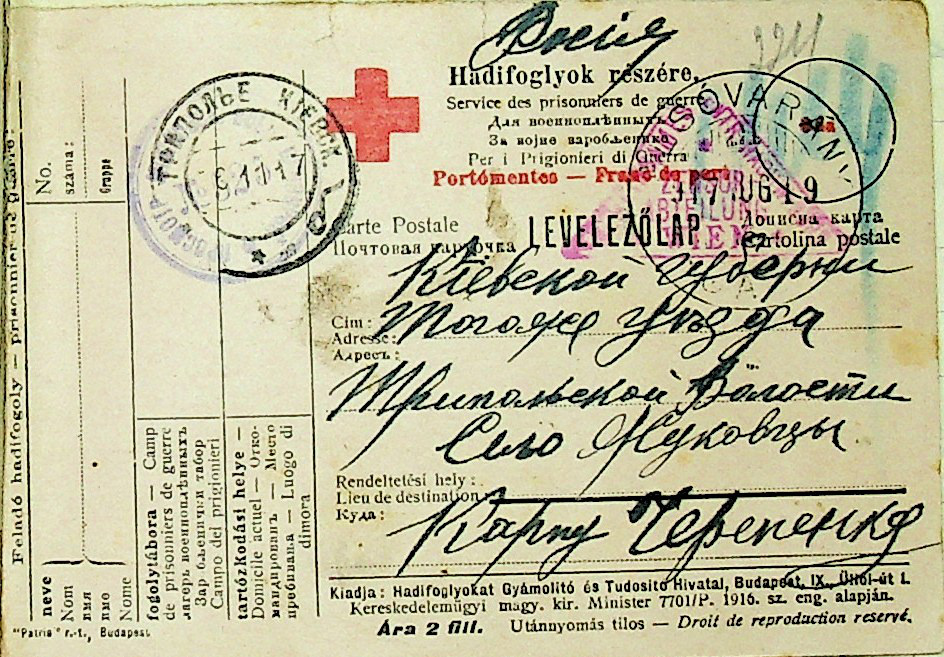 Росія
Hadifoglyok részére.
Service des prisonniers de guerre
Для военноплѣнныхъ
За војне заробљенике
Per i Prigionieri di Guerra
Portómentes — Franc de port
Carte Postale
Почтовая карточка
LEVELEZŐLAP
Дописна карта
Cartolina postale
917 AUG 19
WIEN
ТРИПОЛЬЕ КІЕВСК.
9.11.17
Кіевской губерни
Cím:
Adresse:
Адресъ:
Тогоже уѣзда
Трипольской Волости
Село Жуковцы
Rendeltetési hely:
Lieu de destination:
Куда:
Карпу Черепенко
Kiadja: Hadifoglyokat Gyámolitó és Tudositó Hivatal, Budapest, IX., Üllői-út 1.
Kereskedelemügyi magy. kir. Minister 7701/P. 1916. sz. eng. alapján.
Ára 2 fill. Utánnyomás tilos — Droit de reproduction reservé.
"Patria" r.-t., Budapest
Feladó hadifogoly — prisonnier de guerre:
No.
száma:
Gruppe
neve
Nom
имя
име
Nome
fogolytábora — Camp
de prisonniers de guerre
лагерь военноплѣнныхъ
Campo dei prigionieri
tartózkodási helye —
Domicile actuel — Отко-
мандированъ — Место
пребивања — Luogo di
dimora